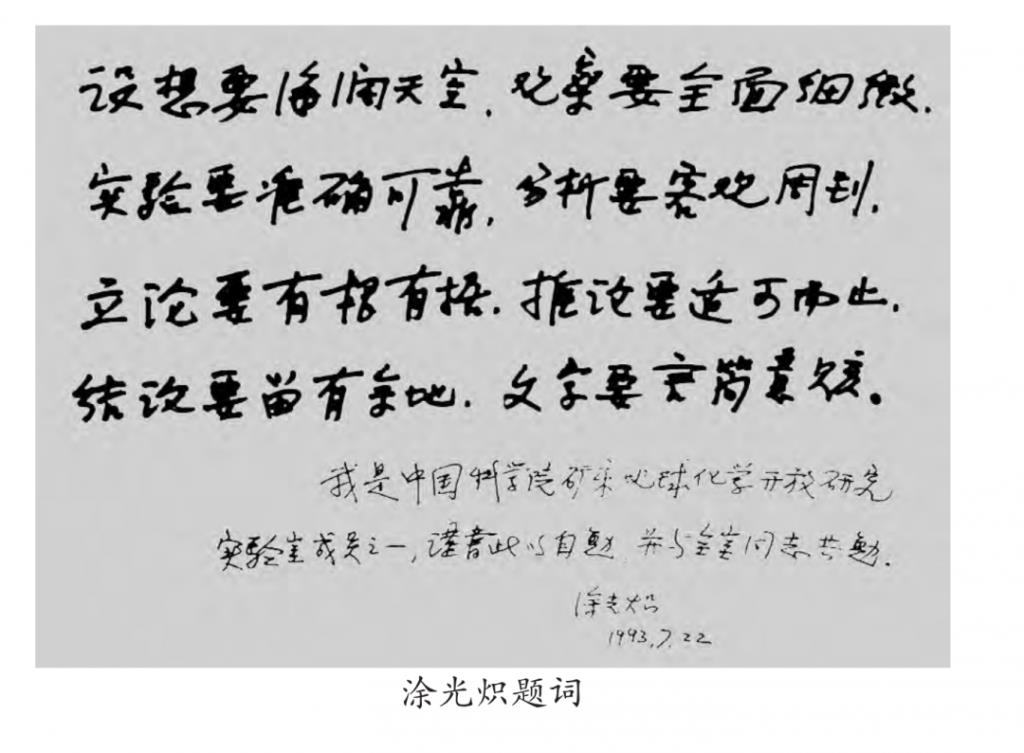 设想要海阔天空，观察要全面细微．
实验要准确可靠，分析要客观周到．
立论要有根有据，推论要适可而止．
结论要留有余地，文字要言简意赅。
我是中国科学院矿床地球化学开放研究
实验室成员之一，谨书此以自勉，并与全室同志共勉．
涂光炽
1993.7.22
涂光炽题词